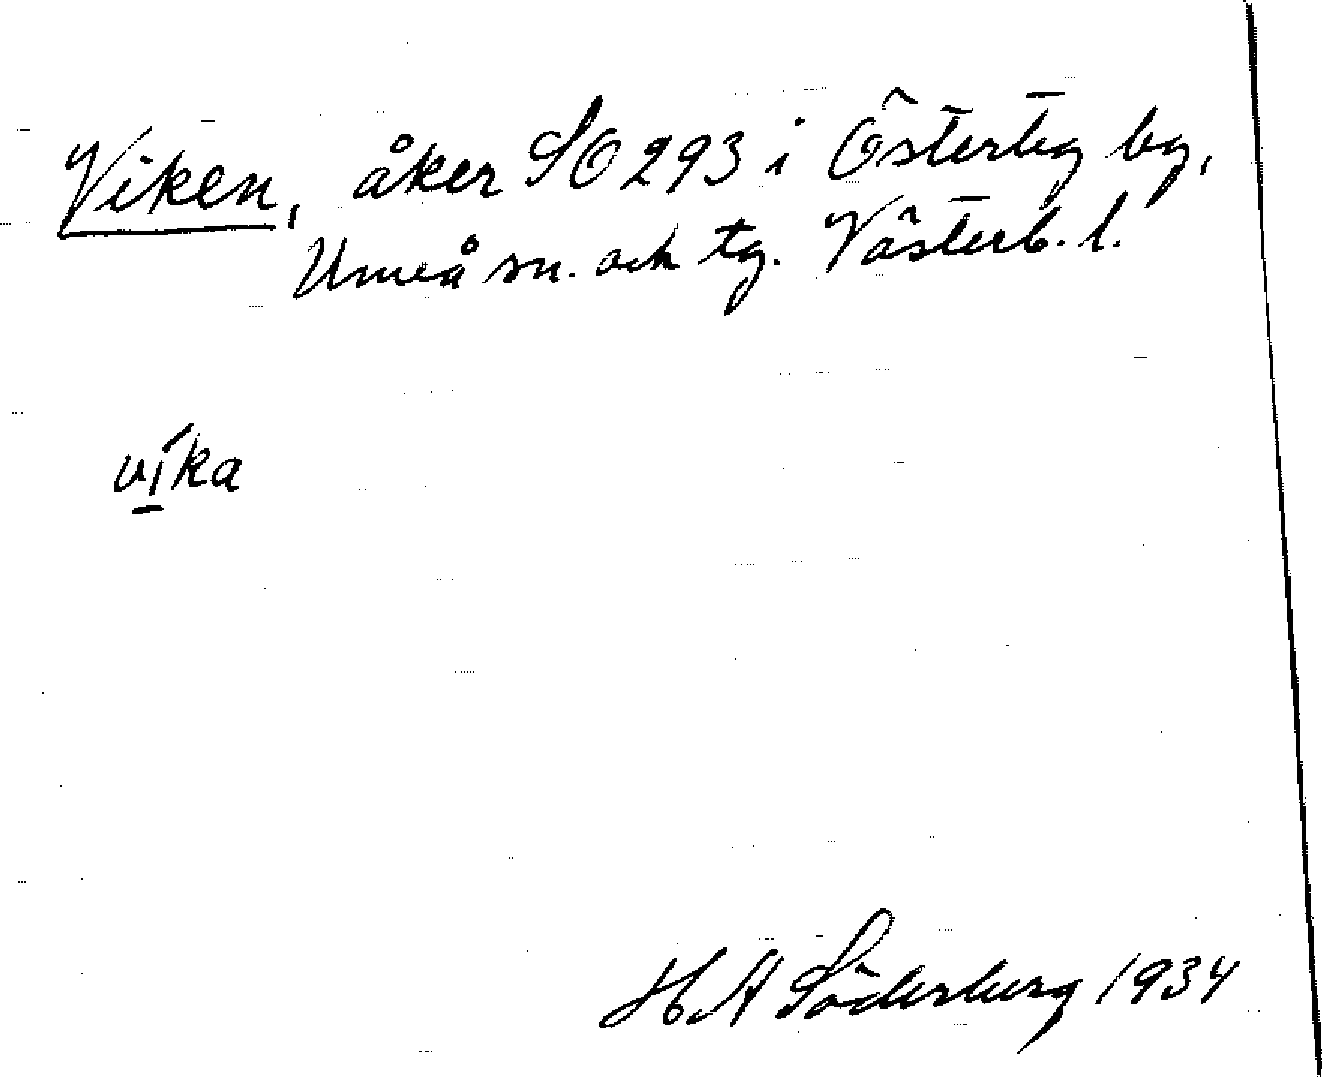 Viken, åker SO 293 i Österteg by,
Umeå sn. och tg. Västerb. l.
víka
H A Söderberg 1934